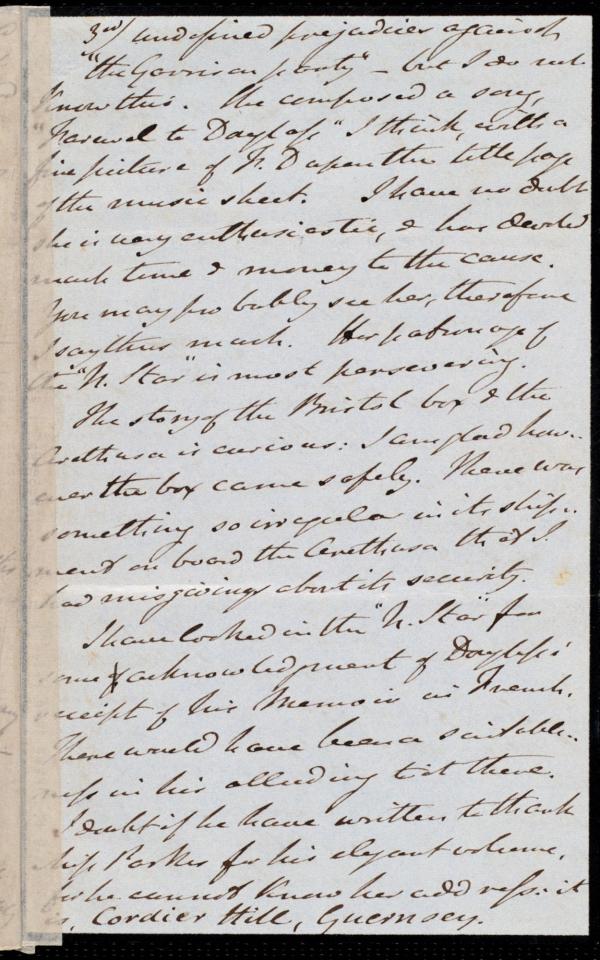 3rd/ undefined prejudices against
"the Garrison party" - but I do not
know this. She composed a song,
"Farewel to Douglass" I think, with a
fine picture of F. D upon the title page
of the music sheet. I have no doubt
she is very enthusiastic, & has devoted
much time & money to the cause.
You may probably see her, therefore
I say thus much. Her patronage of
the "N. Star" is most persevering.
The story of the Bristol box & the
Arethusa is curious: I am glad how-
ever the box came safely. There was
something so irregular in its ship-
ment on board the Arethusa that I
had misgivings about its security.
I have looked in the "N. Star" for
some acknowledgment of Douglass's
receipt of his Memoir in French.
There would have been a suitable-
ness in his alluding to it there.
I doubt if he have written to thank
Miss Parker for his elegant volume,
for he cannot know her address: it
is, Cordier Hill, Guernsey.